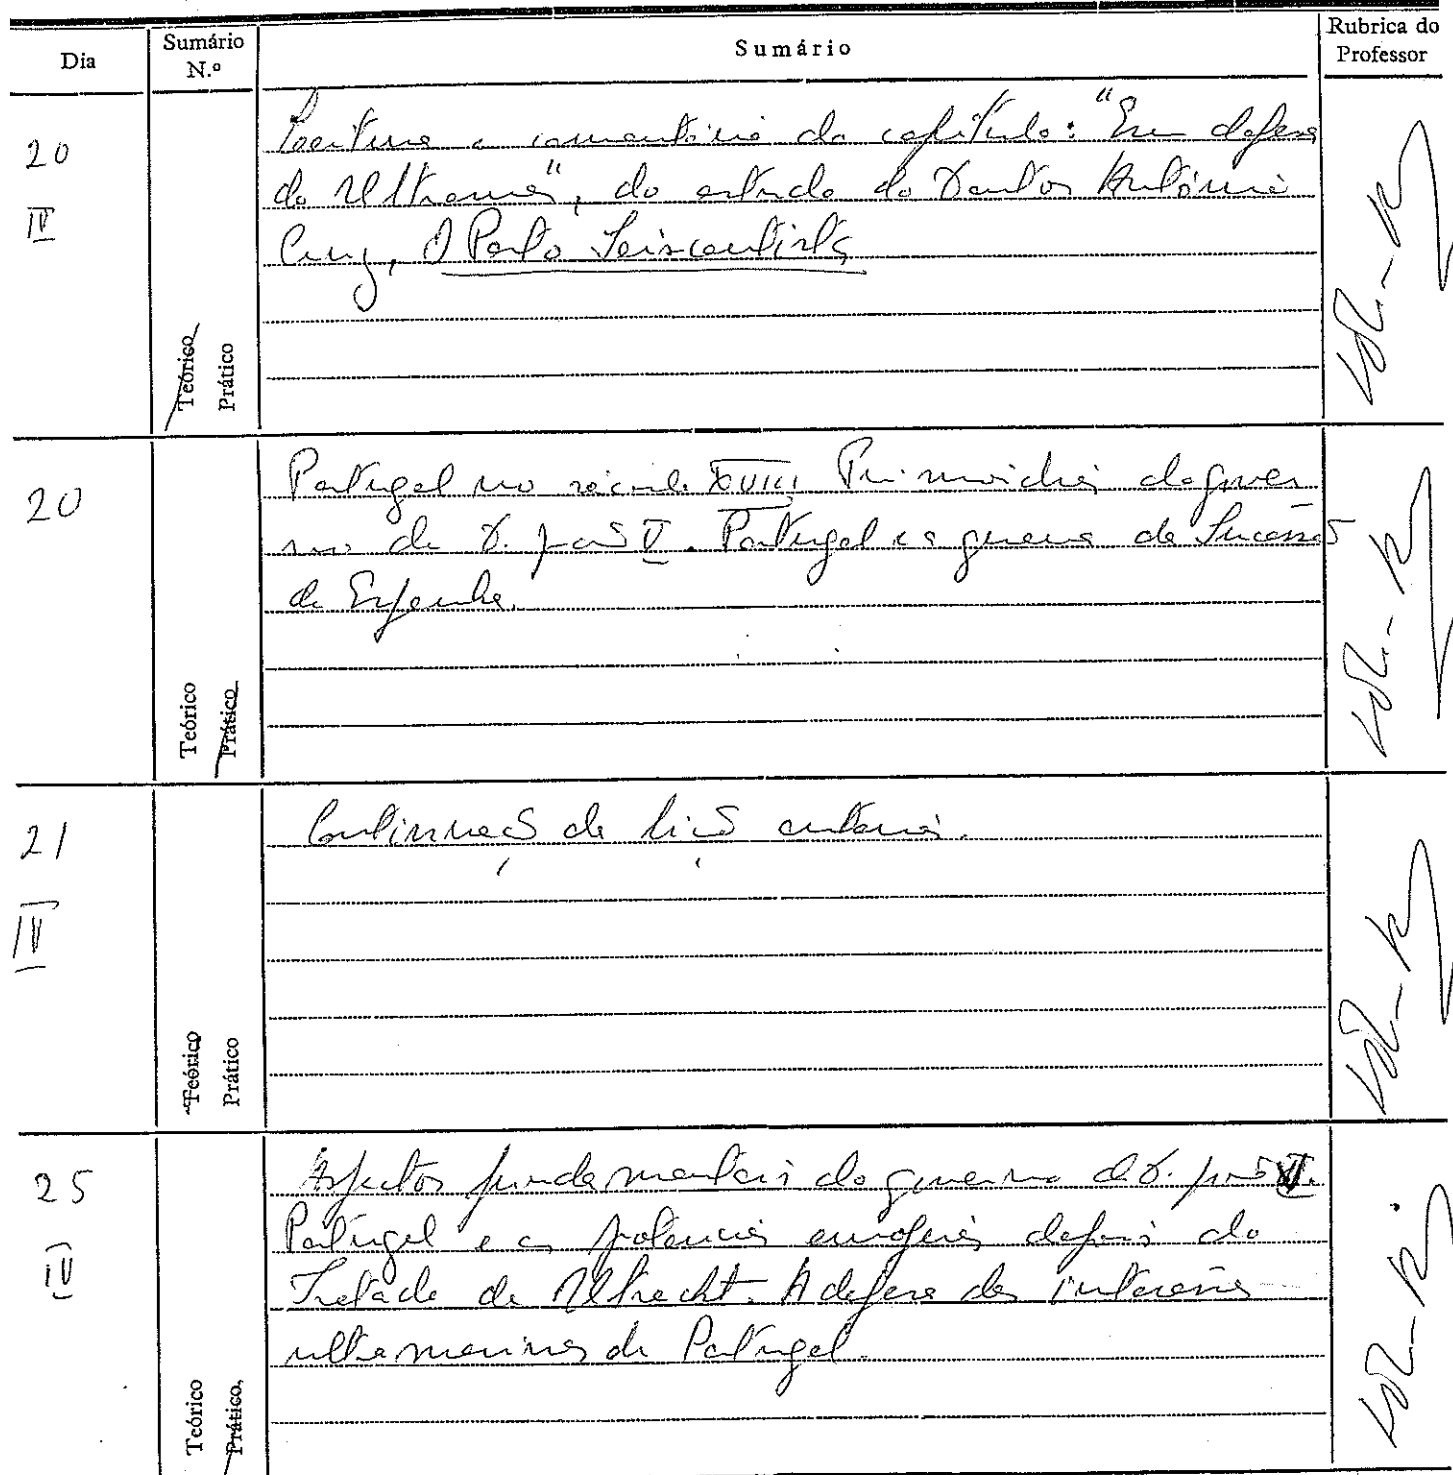 Dia
Sumário N.º
Sumário
Rubrica do Professor
20
IV
Leitura e comentário do capítulo: "Em defesa
do Ultramar", do estudo do Doutor António
Cruz, O Porto Seiscentista
Teórico
Prático
20
Portugal no século XVIII. Primórdios do gover
no de D. João V. Portugal e a guerra da Sucessão
de Espanha.
Teórico
Prático
21
IV
Continuação da lição anterior.
Teórico
Prático
25
IV
Aspectos fundamentais do governo de D. João V.
Portugal e as potências europeias depois do
Tratado de Utrecht. A defesa dos interesses
ultramarinos de Portugal.
Teórico
Prático